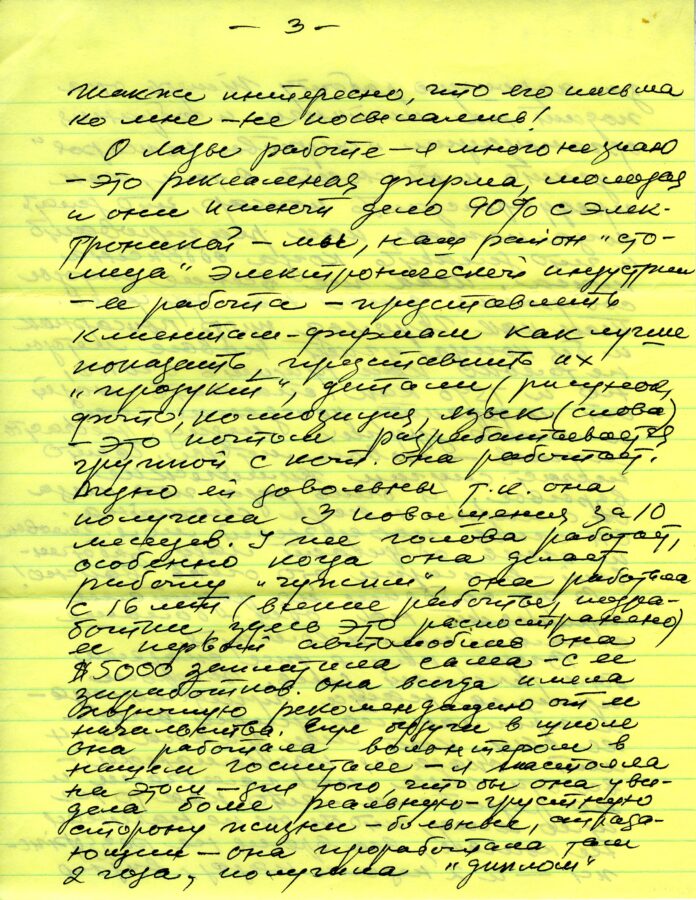 — 3 —
также интересно, что его письма
ко мне – не посвещались!
О Лазы работе – я много не знаю
– это рекламная фирма, молодая
и они имеют дело 90% с элек-
троникой – мы, наш район "сто-
лица" электронической индустрии
– ее работа – представлять
клиентам-фирмам как лучше
показать, представить их
"продукт", детали (рисунок,
фото, композиция, язык (слова)
– это потом разрабатывается
группой с кот. она работает.
Видно ей довольны т.к. она
получила 3 повошения за 10
месецев. У нее голова работает,
особенно когда она делает
работу "чужим", она работала
с 16 лет (всякие работы, подра-
ботки, здесь это распостранено)
ее первый автомобиль она
$5000 заплатила сама – с ее
заработков. Она всегда имела
отличную рекомендацию от ее
начальства. Еще будучи в школе
она работала волонтером в
нашем госпитале – я настояла
на этом – для того, что бы она уви-
дела более реальную-грустную
сторону жизни – больные, страда-
ющии – она проработала там
2 года, получила "диплом"